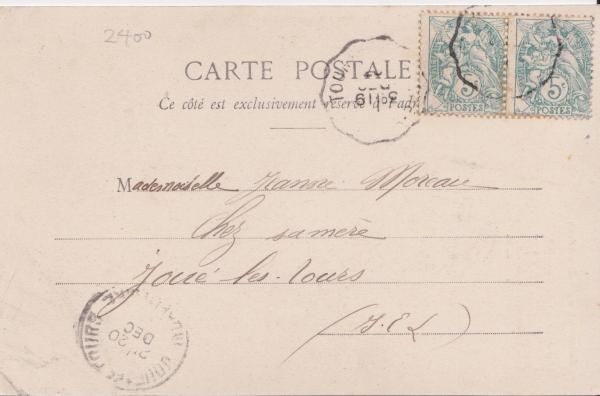 2400
CARTE POSTALE
Ce côté est exclusivement réservé à l'adr
TOUR
5c POSTES 5c POSTES
Mademoiselle Jeanne Moreau
Chez samère
Joué-les-Tours
(I.&L)
20
DEC
TOURS